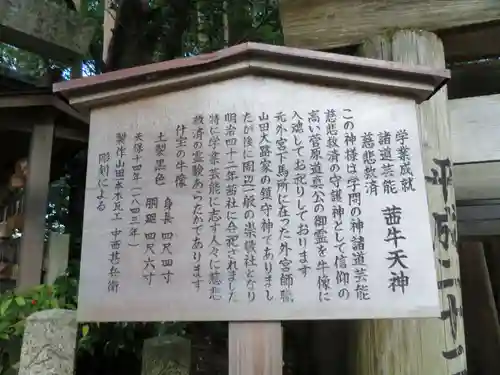 学業成就
諸道芸能
慈悲救済
茜牛天神
この神様は学問の神諸道芸能
慈悲救済の守護神として信仰の
高い菅原道真公の御霊を牛像に
入魂してお祀りしております
元外宮下馬所に在った外宮師職
山田大路家の鎮守神でありまし
たが後に周辺一般の崇敬社となり
明治四十一年当社に合祀されました
特に学業・芸能を志す人々に慈悲
救済の霊験あらたかであります
什宝の牛像
土製黒色
身長 四尺四寸
胴廻 四尺六寸
天保十四年(一八四三年)
製作山田水木瓦工 中西甚兵衛
彫刻による
平成二十二